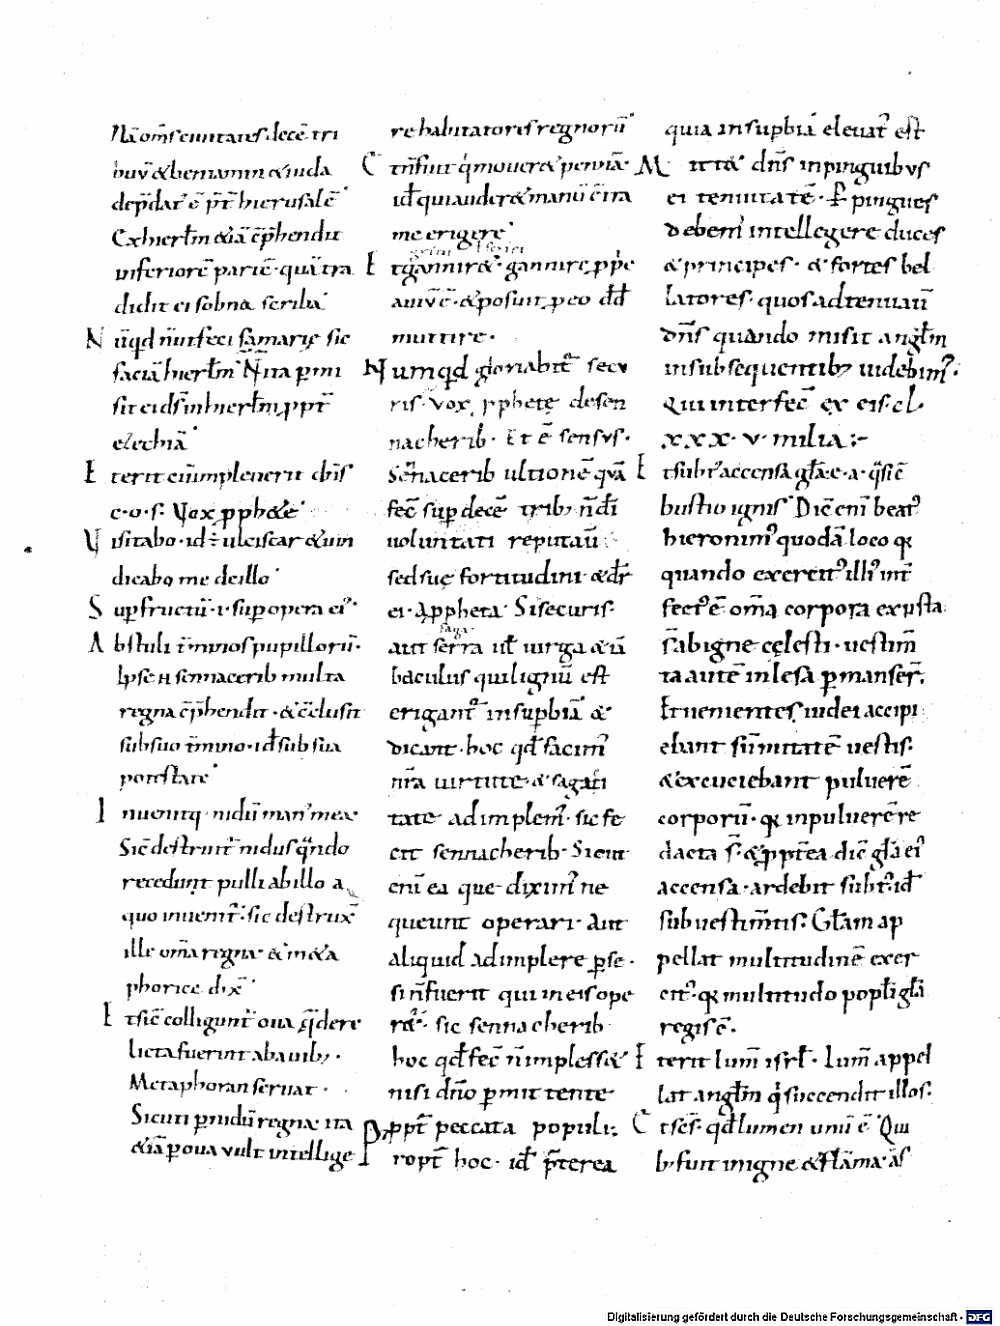 Nā om̄s ciuitates decē tri
buū & beniamin & iuda
dep̄dat' ē p̄t̄ hierusalē
Ex hierl̄m & iā c̄p̄hendit
inferiorē partē quā tra
didit ei sobna scriba
N ūqd n̄ ut feci samarię sic
faciā hierl̄m N̄ ita permi
sit ei d̄s in hierl̄m ppt̄
ezechiā
E t erit cū impleuerit dn̄s
c·o·s· Vox pphetę
V isitabo · id ÷ ulciscar & uin
dicabo me de illo
S up fructū · i · sup opera ei'
A bstuli t̄minos pupillorū·
Ipse n̄ sennacerib multa
regna c̄p̄hendit · & c̄clusit
sub suo t̄mino · id sub sua
potestate
I nuenit q· nidū man' mea·
Sic destruit' nidus qn̄do
recedunt pulli ab illo a
quo inuenit'· sic destrux̄
ille om̄a regna · & meta
phorice dix̄
E t sic colligunt' oua q̄ dere
licta fuerint ab auib;·
Metaphoran seruat·
Sicut p nidū regna· ita
& iā p oua vult intellige
re habitatoris regnorū
E t n̄ fuit q̇ mouer& pennā·
id qui auder& manū c̄tra
me erigere
E t gannir& · gannire pp̄e
auiū ē · & posuit p eo d̄d
muttire·
N umqd gloriabit' secu
ris· Vox pphetę de sen
nacherib· Et ē sensus·
Sennacerib ultionē quā
fec̄ sup decē trib; n̄ d̄i
uoluntati reputaū
sed suę fortitudini · & dr̄
ei · A ppheta· Si securis·
aut serra ut uirga & ū
baculus qui lignū est
erigant' in supbiā &
dicant · hoc qd̄ facim'
nr̄a uirtute· & sagaci
tate adimplem'· sic fe
cit sennacherib· Sicut
eni ea que diximus ne
queunt operari· Aut
aliquid adimplere p se·
si n̄ fuerit qui in eis ope
r&'· sic sennacherib
hoc qd̄ fec̄ n̄ impless&
nisi dn̄o p mittente
ppt̄ peccata populi;
P ropt̄ hoc · id p̄terea
quia in supbiā eleuat' est
M itt& dn̄s in pinguibus
ei tenuitatē· P pingues
debem' intellegere duces
& principes· & fortes bel
latores· quos adtenuaū
dn̄s quando misit angl̄m
in subsequentib; uidebim'·
Qui interfec̄ ex eis cl·
xxx·v·milia:-
E t subt' accensa gl̄a e·a· q̄si c̄
bustio ignis· Dic̄ eni beat'
hieronim' quodā loco qđ
quando exercit' illi' int̄
fect' ē om̄a corpora exusta
s̄ ab igne cęlesti· uestim̄
ta autē inlesa p manser̄·
Et uenientes iudei accipi
ebant sūmitatē uestis·
& excuciebant puluerē
corporū· qđ in puluerē re
dacta s̄· & ppt̄ea dic̄ gl̄a ei'
accensa · ardebit subt'· id
sub uestim̄tis· Gl̄am ap
pellat multitudinē exer
cit'· qđ multitudo popl̄i gl̄a
regis ē·
E t erit lum̄ isrl̄· Lum̄ appel
lat angl̄m q̇ succendit illos·
E t s̄c̄s· qd̄ lumen unū ē· Qui
b; fuit in igne & flāma· as̄
grini l seuiri
saga
Digitalisierung gefördert durch die Deutsche Forschungsgemeinschaft · DFG